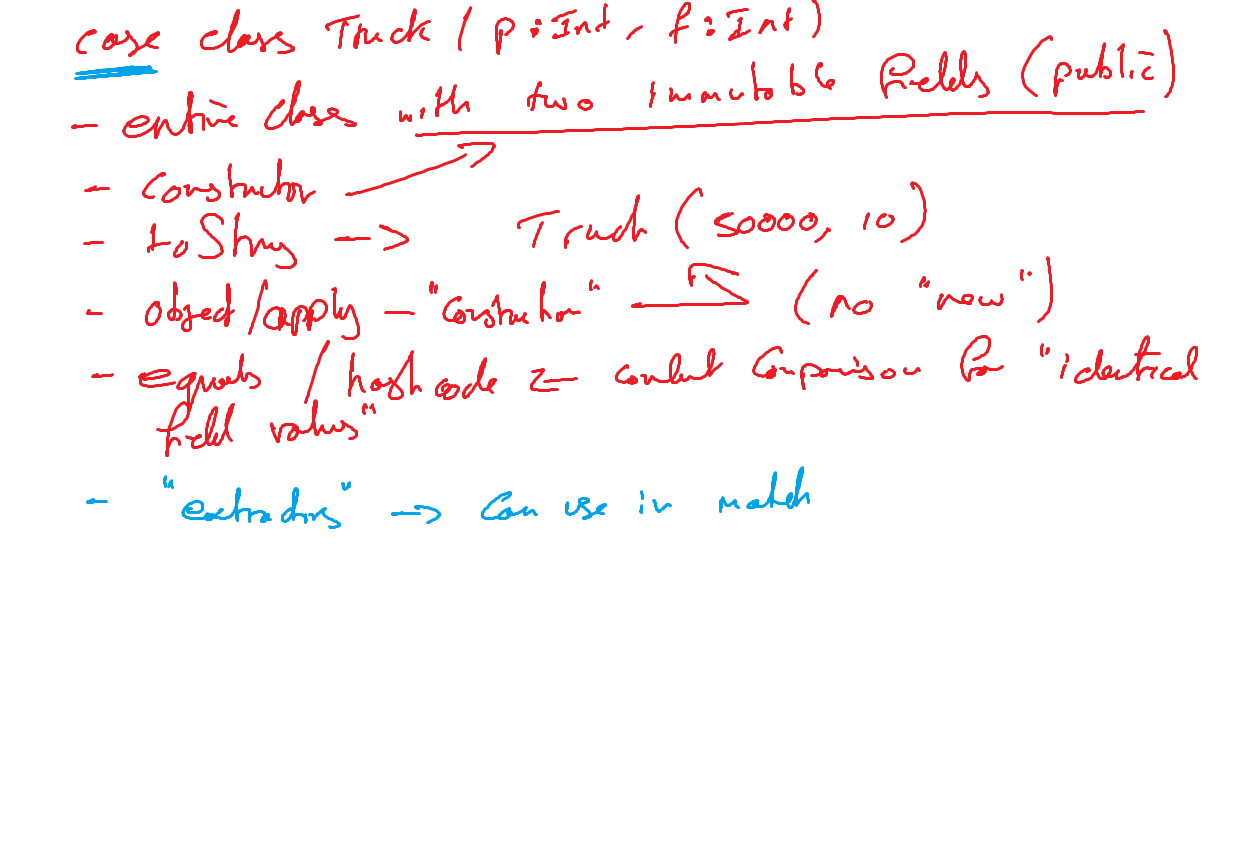 case class Truck (p:Int, f:Int)
- entire class with two immutable fields (public)
- Constructor
- toString -> Truck (50000, 10)
- object/apply - "Constructor" (no "new")
- equals / hashcode = content Comparison for "identical
field values"
- "extractors" -> Can use in match